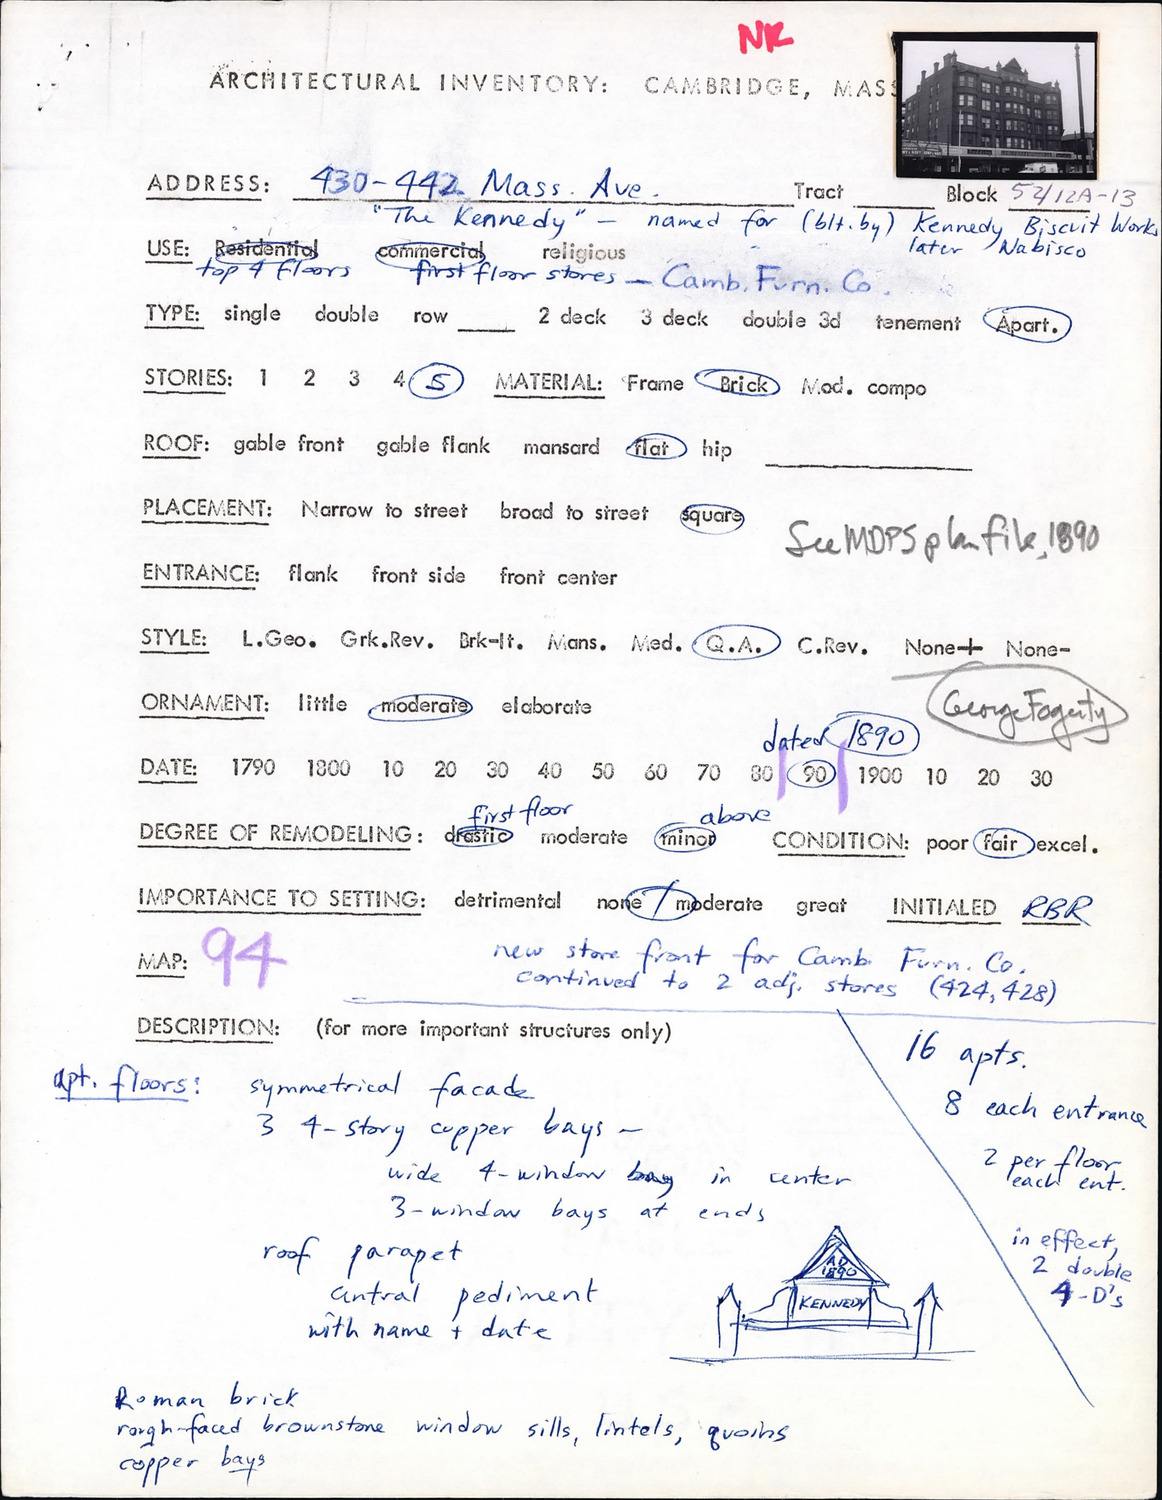 NR
ARCHITECTURAL INVENTORY: CAMBRIDGE, MASS
ADDRESS: 430-442 Mass. Ave. Tract Block 52/12A-13
"The Kennedy" - named for (blt. by) Kennedy Biscuit Works
later Nabisco
USE: Residential commercial religious
top 4 floors first floor stores - Camb. Furn. Co.
TYPE: single double row 2 deck 3 deck double 3d tenement Apart.
STORIES: 1 2 3 4 5 MATERIAL: Frame Brick Mod. compo
ROOF: gable front gable flank mansard flat hip
PLACEMENT: Narrow to street broad to street square
See MDPS plan file, 1890
ENTRANCE: flank front side front center
STYLE: L.Geo. Grk.Rev. Brk-It. Mans. Med. Q.A. C.Rev. None+ None-
ORNAMENT: little moderate elaborate
George Fogerty
dated 1890
DATE: 1790 1800 10 20 30 40 50 60 70 80 90 1900 10 20 30
first floor above
DEGREE OF REMODELING: drastic moderate minor CONDITION: poor fair excel.
IMPORTANCE TO SETTING: detrimental none / moderate great INITIALED RBR
MAP: 94
new store front for Camb. Furn. Co.
continued to 2 adj. stores (424, 428)
DESCRIPTION: (for more important structures only)
apt. floors: symmetrical facade
3 4-story copper bays -
wide 4-window bay in center
3-window bays at ends
roof parapet
central pediment
with name + date
AD
1890
KENNEDY
16 apts.
8 each entrance
2 per floor
each ent.
in effect,
2 double
4-D's
Roman brick
rough-faced brownstone window sills, lintels, quoins
copper bays